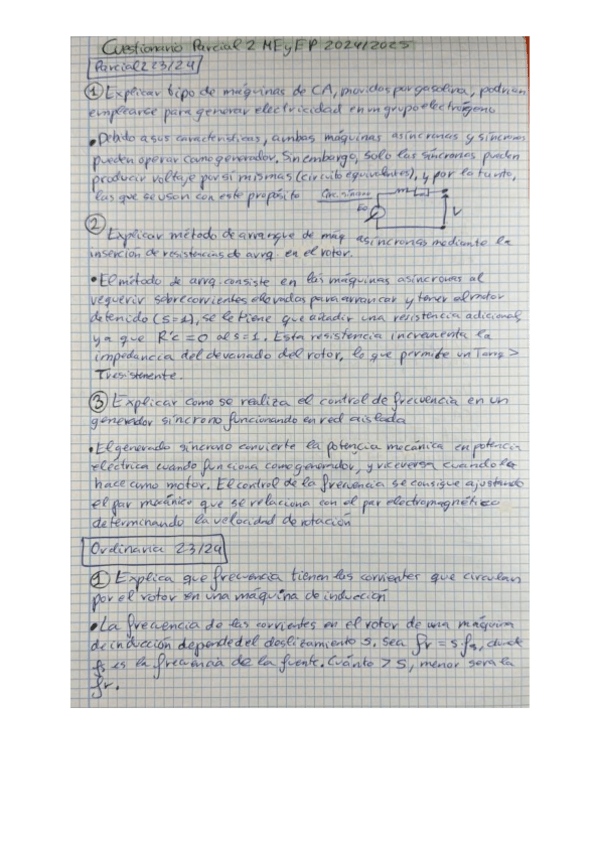 Cuestionario Parcial 2 MEyEP 2024/2025
Parcial 2 23/24
① Explicar tipo de máquinas de CA, movidas por gasolina, podrían
emplearse para generar electricidad en un grupo electrógeno
• Debido a sus características, ambas máquinas asíncronas y síncronas
pueden operar como generador. Sin embargo, solo las síncronas pueden
producir voltaje por sí mismas (circuito equivalentes), y por lo tanto,
las que se usan con este propósito
Eo V
② Explicar método de arranque de máq asíncronas mediante la
inserción de resistencias de arrq. en el rotor.
• El método de arrq. consiste en las máquinas asíncronas al
requerir sobrecorrientes elevadas para arrancar y tener al rotor
detenido (s=1), se le tiene que añadir una resistencia adicional
ya que R'c = 0 al s=1. Esta resistencia incrementa la
impedancia del devanado del rotor, lo que permite un Tarrq >
Tresistenente.
③ Explicar como se realiza el control de frecuencia en un
generador síncrono funcionando en red aislada
• El generado síncrono convierte la potencia mecánica en potencia
eléctrica cuando funciona como generador, y viceversa cuando lo
hace como motor. El control de la frecuencia se consigue ajustando
el par mecánico que se relaciona con el par electromagnético
determinando la velocidad de rotación
Ordinaria 23/24
① Explica que frecuencia tienen las corrientes que circulan
por el rotor en una máquina de inducción
• La frecuencia de las corrientes en el rotor de una máquina
de inducción depende del deslizamiento s. Sea fr = s fs, donde
fs es la frecuencia de la fuente. Cuánto > S, menor será la
fr.